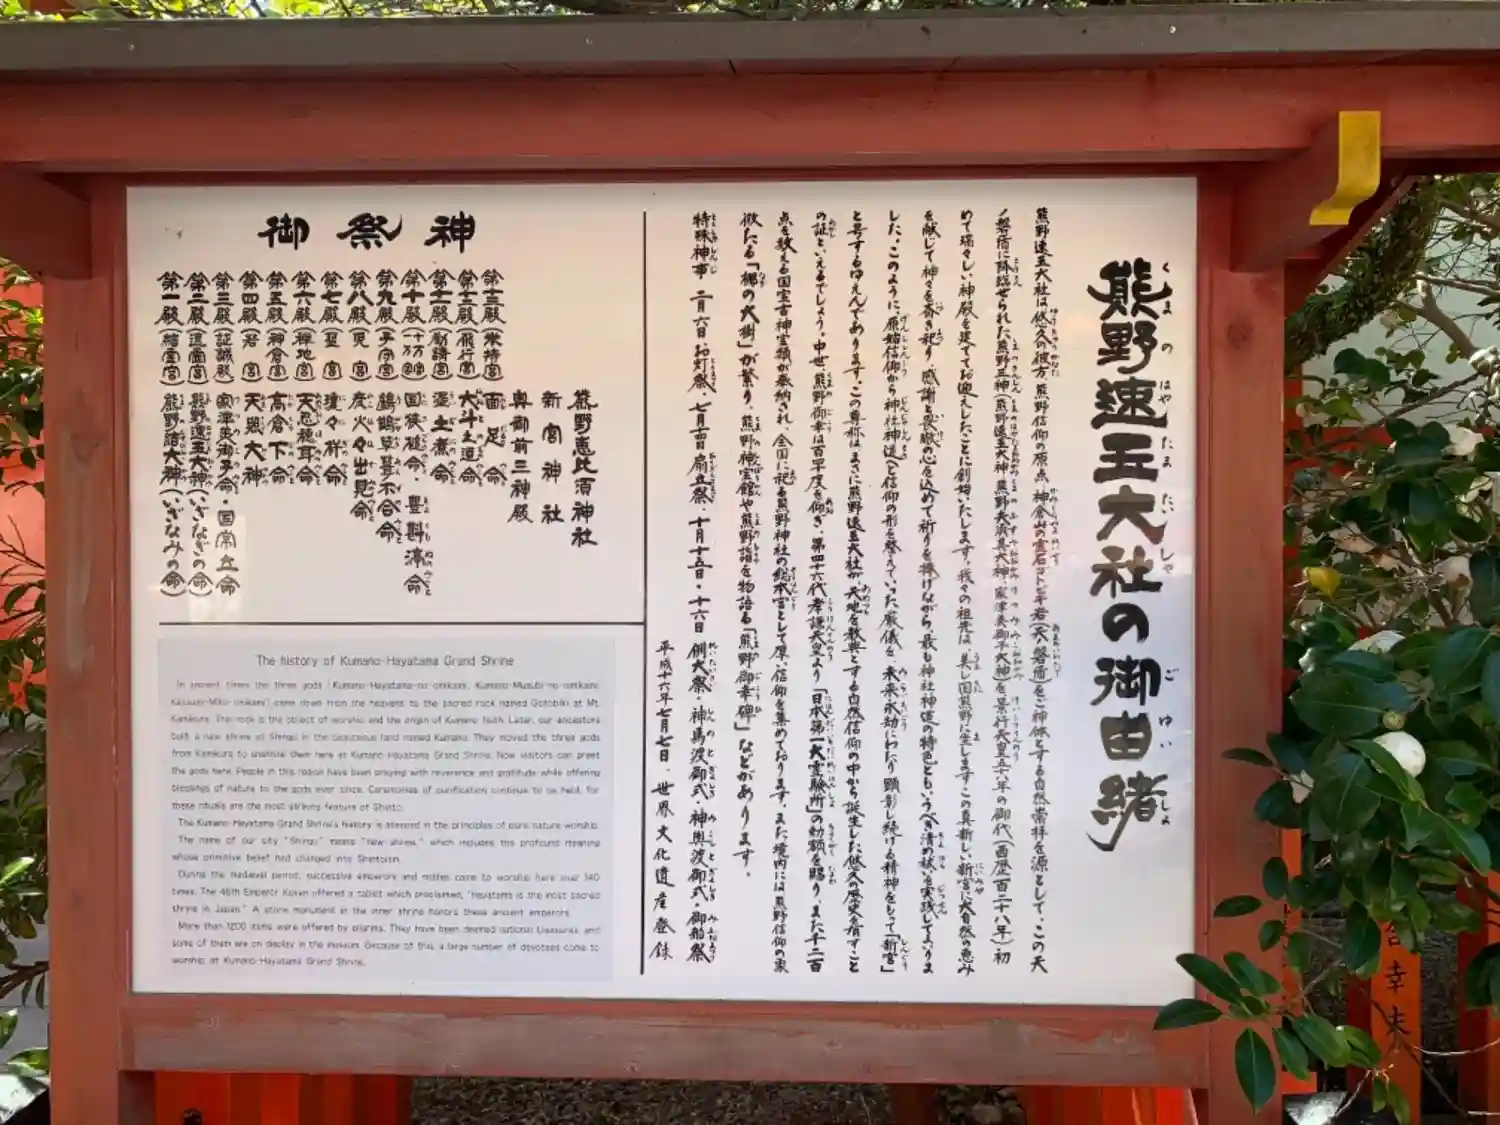 熊野速玉大社の御由緒
熊野速玉大社は悠久の彼方、熊野信仰の原点、神倉山の霊石ゴトビキ岩(天ノ磐盾)をご神体とする自然崇拝を源として、この天
ノ磐盾に降臨せられた熊野三神(熊野速玉大神・熊野夫須美大神・家津美御子大神)を景行天皇五十八年の御代(西歴百二十八年)初
めて瑞々しい神殿を建ててお迎えしたことに創始いたします。我々の祖先は、美し国熊野に生します、この真新しい新宮に大自然の恵み
を献じて神々を斎き祀り、感謝と畏敬の心を込めて祈りを捧げながら、最も神社神道の特色ともいうべき清め祓いを実践してまいりま
した。このように、原始信仰から神社神道へと信仰の形を整えていった厳儀を、未来永劫にわたり顕彰し続ける精神をもって「新宮」
と号するゆえんであります。この尊称は、まさに熊野速玉大社が、天地を教典とする自然信仰の中から誕生した悠久の歴史を有すこと
の証といえるでしょう。中世、熊野御幸は百四十度を仰ぎ、第四十六代孝謙天皇より「日本第一大霊験所」の勅額を賜り、また千二百
点を数える国宝古神宝類が奉納され、全国に祀る熊野神社の総本宮として厚い信仰を集めております。また境内には熊野信仰の象
徴たる「梛の大樹」が繁り、熊野神宝館や熊野詣を物語る「熊野御幸碑」などがあります。
特殊神事・二月六日 お灯祭、七月十四日 扇立祭、十月十五日・十六日 例大祭・神馬渡御式・神輿渡御式・御船祭
平成十六年七月七日、世界文化遺産登録
御祭神
熊野恵比須神社
新宮神社
奥御前三神殿
第十三殿(米持宮) 面足命
第十二殿(飛行宮) 大斗之道命
第十一殿(勧請宮) 埿土煮命
第十殿(十万宮) 国狭槌命・豊斟渟命
第九殿(子守宮) 鸕鶿草葺不合命
第八殿(児宮) 彦火々出見命
第七殿(聖宮) 瓊々杵命
第六殿(禅地宮) 天忍穂耳命
第五殿(神倉宮) 高倉下命
第四殿(若宮) 天照大神
第三殿(証誠殿) 家津美御子命・国常立命
第二殿(速玉宮) 熊野速玉大神(いざなぎの命)
第一殿(結宮) 熊野結大神(いざなみの命)
The history of Kumano-Hayatama Grand Shrine
In ancient times the three gods (Kumano-Hayatama-no-omikami, Kumano-Musubi-no-omikami,
Ketsumi-Miko-omikami) came down from the heavens to the sacred rock named Gotobiki at Mt.
Kamikura. This rock is the object of worship and the origin of Kumano faith. Later, our ancestors
built a new shrine at Shingu in the bounteous land named Kumano. They moved the three gods
from Kamikura to enshrine them here at Kumano Hayatama Grand Shrine. Now visitors can greet
the gods here. People in this region have been praying with reverence and gratitude while offering
blessings of nature to the gods ever since. Ceremonies of purification continue to be held, for
these rituals are the most striking feature of Shinto.
The Kumano-Hayatama Grand Shrine's history is steeped in the principles of pure nature worship.
The name of our city "Shingu" means "new shrine," which includes this profound meaning
whose primitive belief had changed into Shintoism.
During the medieval period, successive emperors and nobles came to worship here over 140
times. The 46th Emperor Koken offered a tablet which proclaimed, "Hayatama is the most sacred
shrine in Japan." A stone monument in the inner shrine honors these ancient emperors.
More than 1200 items were offered by pilgrims. They have been deemed national treasures, and
some of them are on display in the museum. Because of this, a large number of devotees come to
worship at Kumano-Hayatama Grand Shrine.